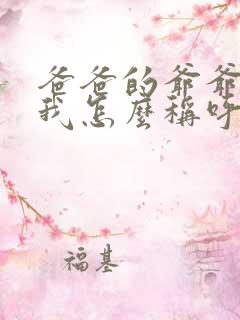 爸爸的爷爷
我怎麼稱呼
福基